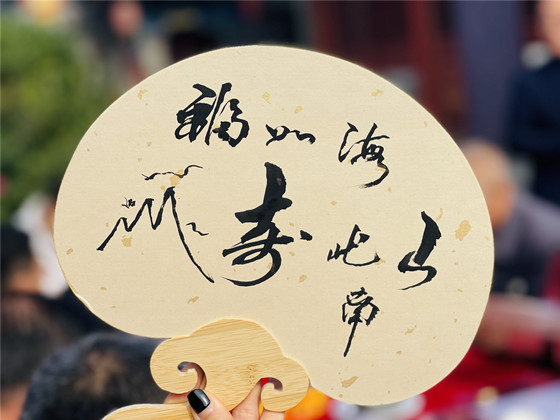 福如海
寿比山
南